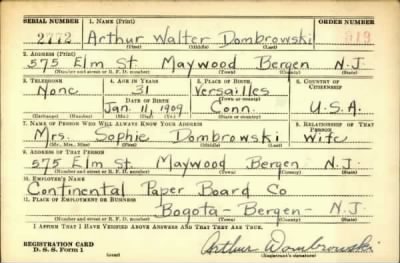 SERIAL NUMBER 1. NAME (Print) ORDER NUMBER
2772 Arthur Walter Dombrowski 919
(First) (Middle) (Last)
2. ADDRESS (Print)
575 Elm St. Maywood Bergen N.J.
(Number and street or R. F. D. number) (Town) (County) (State)
3. TELEPHONE 4. AGE IN YEARS 5. PLACE OF BIRTH 6. COUNTRY OF CITIZENSHIP
None 31 Versailles
DATE OF BIRTH (Town or county)
Jan. 11, 1909 Conn. U.S.A.
(Exchange) (Number) (Mo.) (Day) (Yr.) (State or country)
7. NAME OF PERSON WHO WILL ALWAYS KNOW YOUR ADDRESS 8. RELATIONSHIP OF THAT PERSON
Mrs. Sophie Dombrowski Wife
(Mr., Mrs., Miss) (First) (Middle) (Last)
9. ADDRESS OF THAT PERSON
575 Elm St. Maywood Bergen N.J.
(Number and street or R. F. D. number) (Town) (County) (State)
10. EMPLOYER'S NAME
Continental Paper Board Co
11. PLACE OF EMPLOYMENT OR BUSINESS
Bogota - Bergen - N.J.
(Number and street or R. F. D. number) (Town) (County) (State)
I AFFIRM THAT I HAVE VERIFIED ABOVE ANSWERS AND THAT THEY ARE TRUE.
REGISTRATION CARD
D. S. S. Form 1 (over) Arthur Dombrowski
(Registrant's signature)